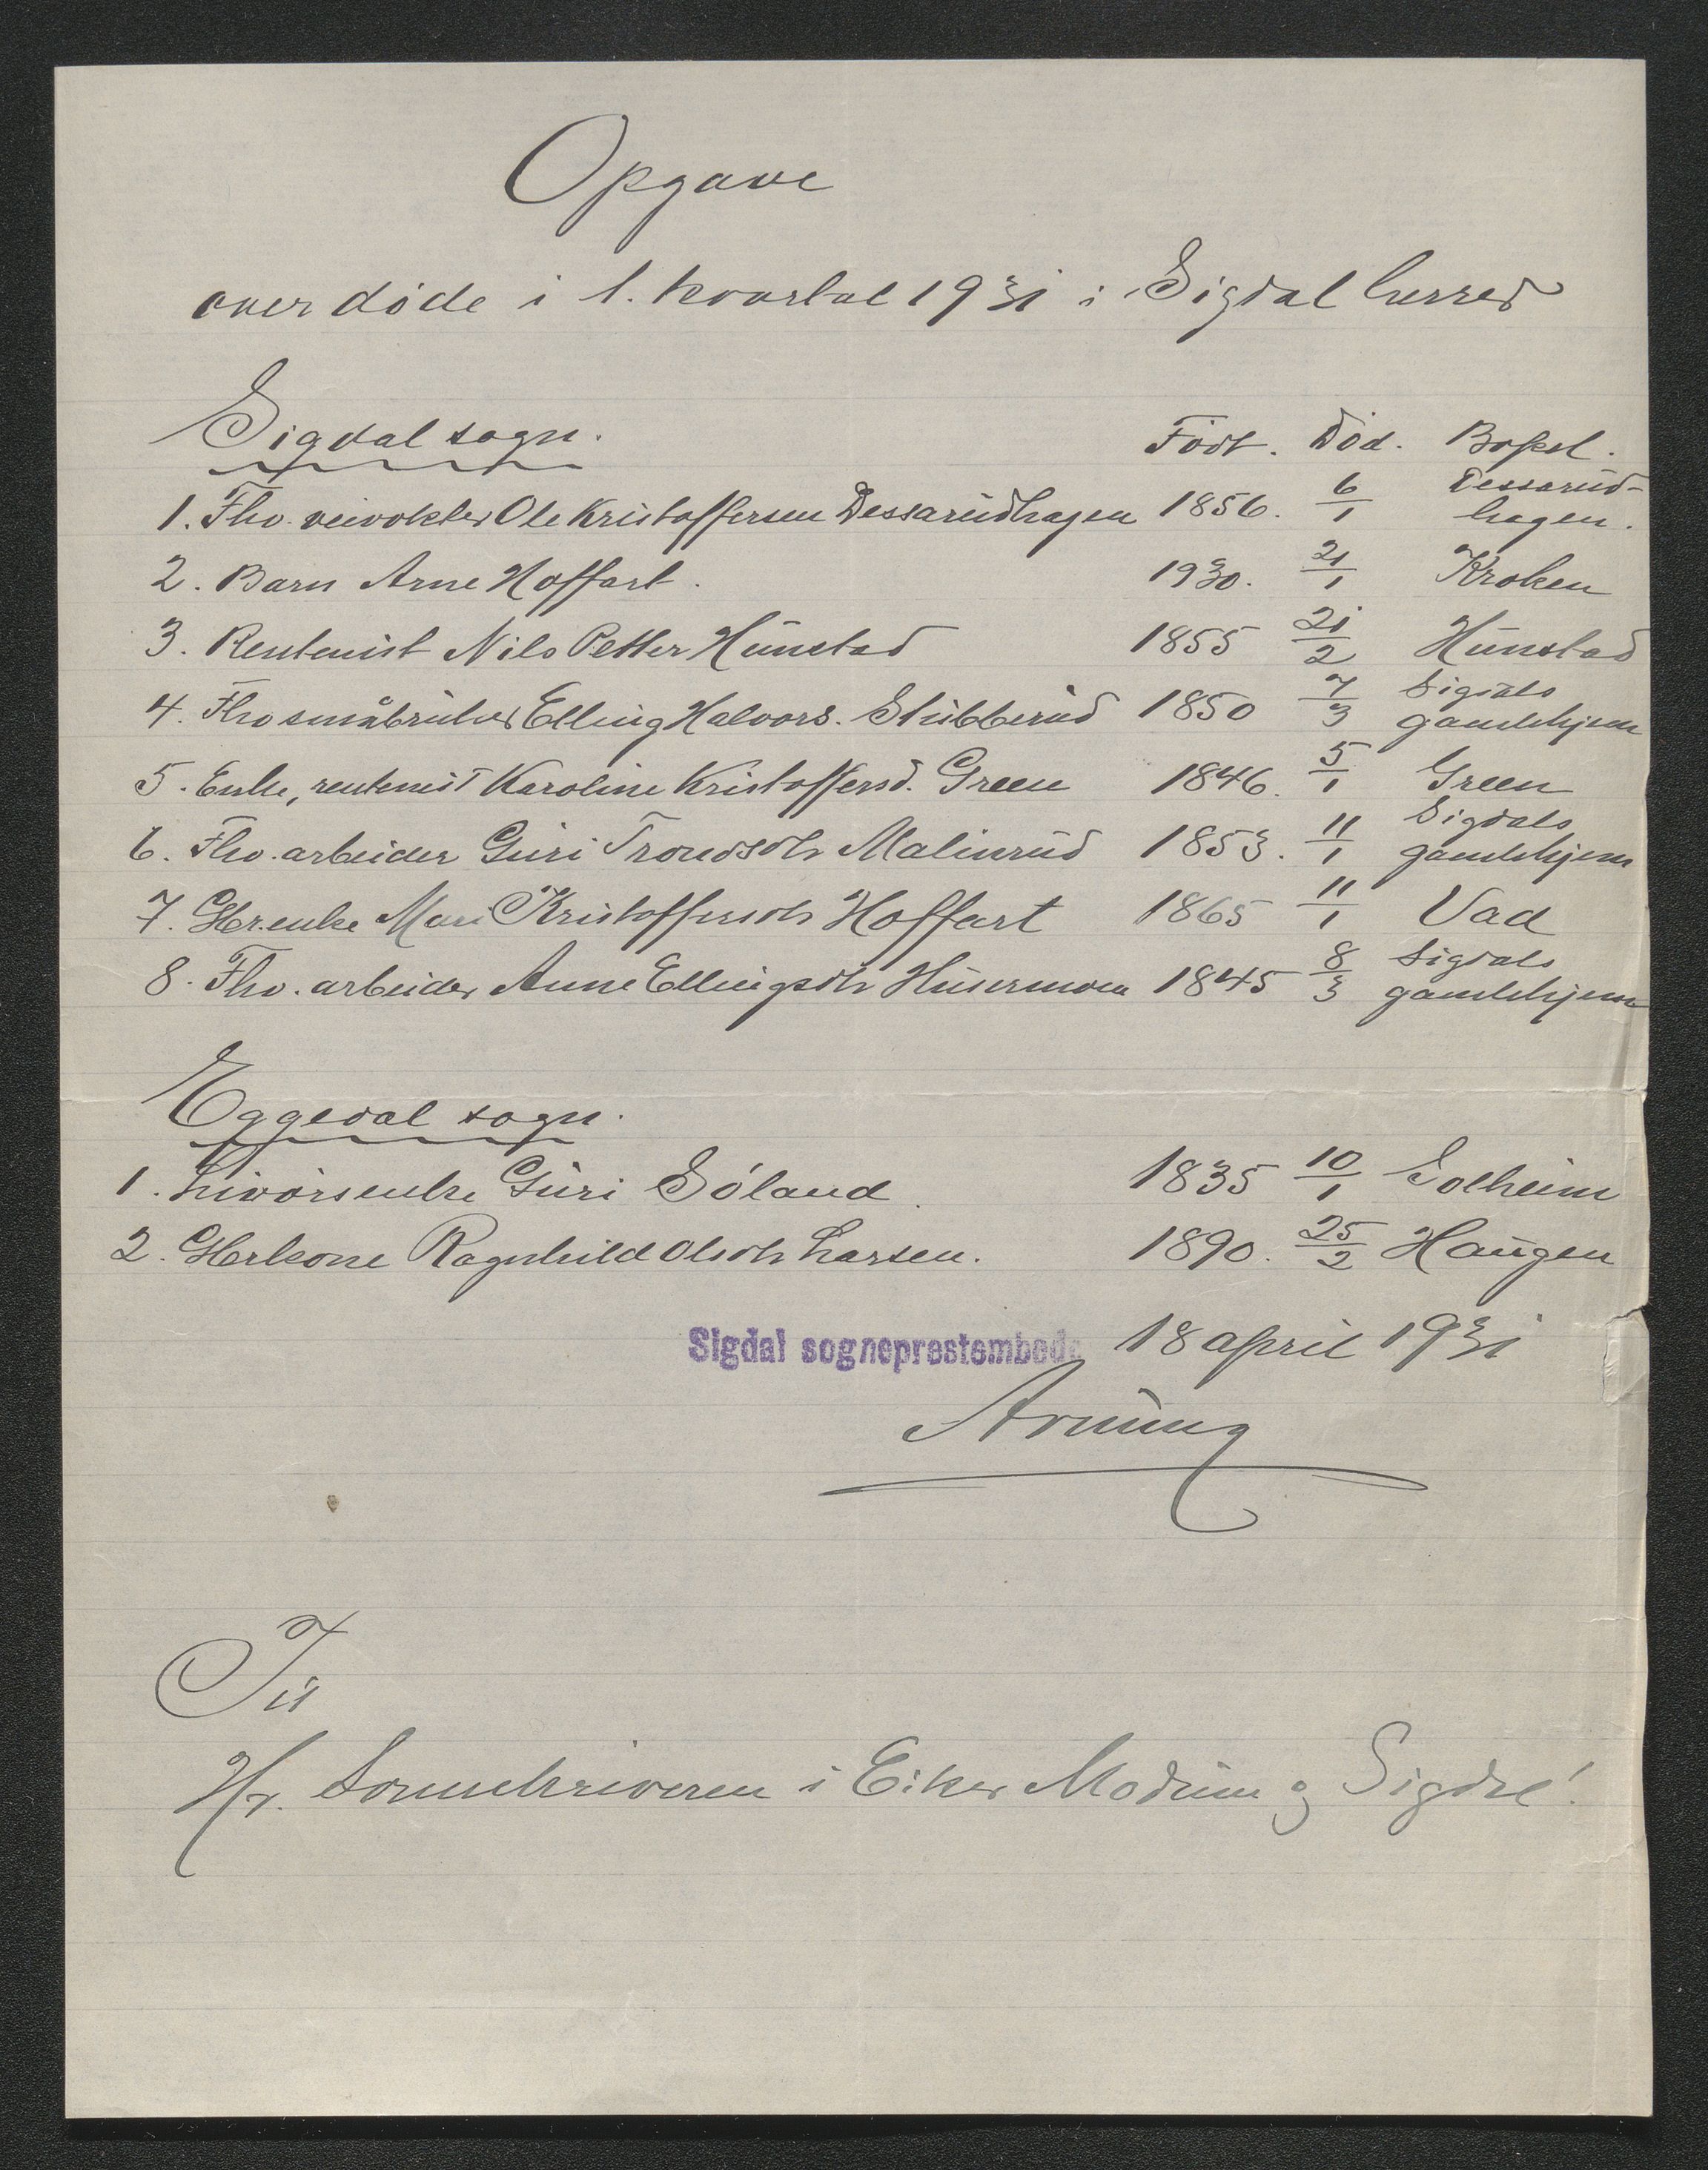 Opgave
over døde i 1. kvartal 1931 i Sigdal herred
Sigdal sogn. Født. Død. Bopæl.
1. Fhv. veivokter Ole Kristoffersen Dessarudhagen 1856. 6/1 Dessarud-
hagen.
2. Barn Arne Hoffart. 1930. 21/1 Kroken
3. Rentenist Nils Petter Hunstad 1855 21/2 Hunstad
4. Fhv småbruker Elling Halvors. Stubberud 1850 7/3 Sigdals
gamlehjem
5. Enke, rentenist Karoline Kristoffersd. Green 1846. 5/1 Green
6. Fhv. arbeider Guri Trondsdtr Malinrud 1853. 11/1 Sigdals
gamlehjem
7. Gbr.enke Mari Kristoffersdtr Hoffart 1865 11/1 Vad
8. Fhv. arbeider Anne Ellingsdtr Husermoen 1845 8/3 Sigdals
gamlehjem
Eggedal sogn.
1. Livørsenke Guri Søland 1835 10/1 Solheim
2. Gbrkone Ragnhild Olsdtr Larsen. 1890. 25/2 Haugen
Sigdal sogneprestembede 18 april 1931
To
Hr. Sorenskriveren i Eiker Modum og Sigdal!